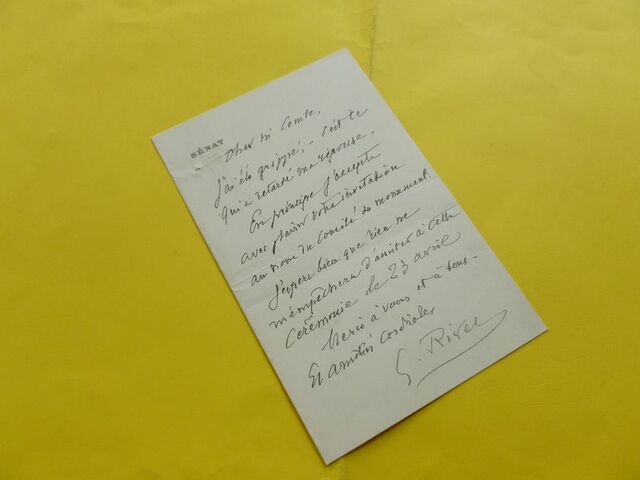 SÉNAT
Cher M. Comte,
J'ai été grippé, – c'est ce
qui a retardé ma réponse.
En principe j'accepte
avec plaisir votre invitation
au nom du Comité du monument.
J'espère bien que rien ne
m'empêchera d'assister à cette
cérémonie le 23 avril
Merci à vous et à tous –
Et amitié cordiale,
G. Rivet